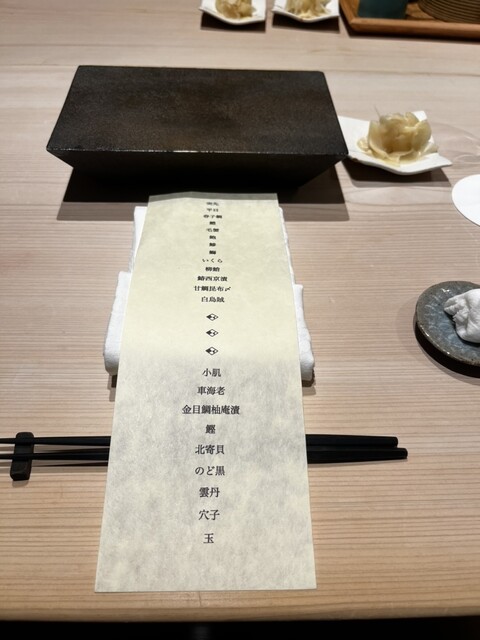 平目
春子鯛
毛蟹
いくら
鰆西京漬
甘鯛昆布〆
白烏賊
小肌
車海老
金目鯛柚庵漬
鰹
北寄貝
のど黒
雲丹
穴子
玉